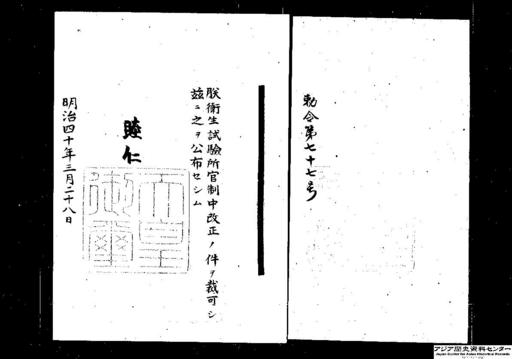 勅令第七十七号
朕衛生試験所官制中改正ノ件ヲ裁可シ
玆ニ之ヲ公布セシム
睦仁
天皇御璽
明治四十年三月二十八日
アジア歴史資料センター
Japan Center for Asian Historical Records